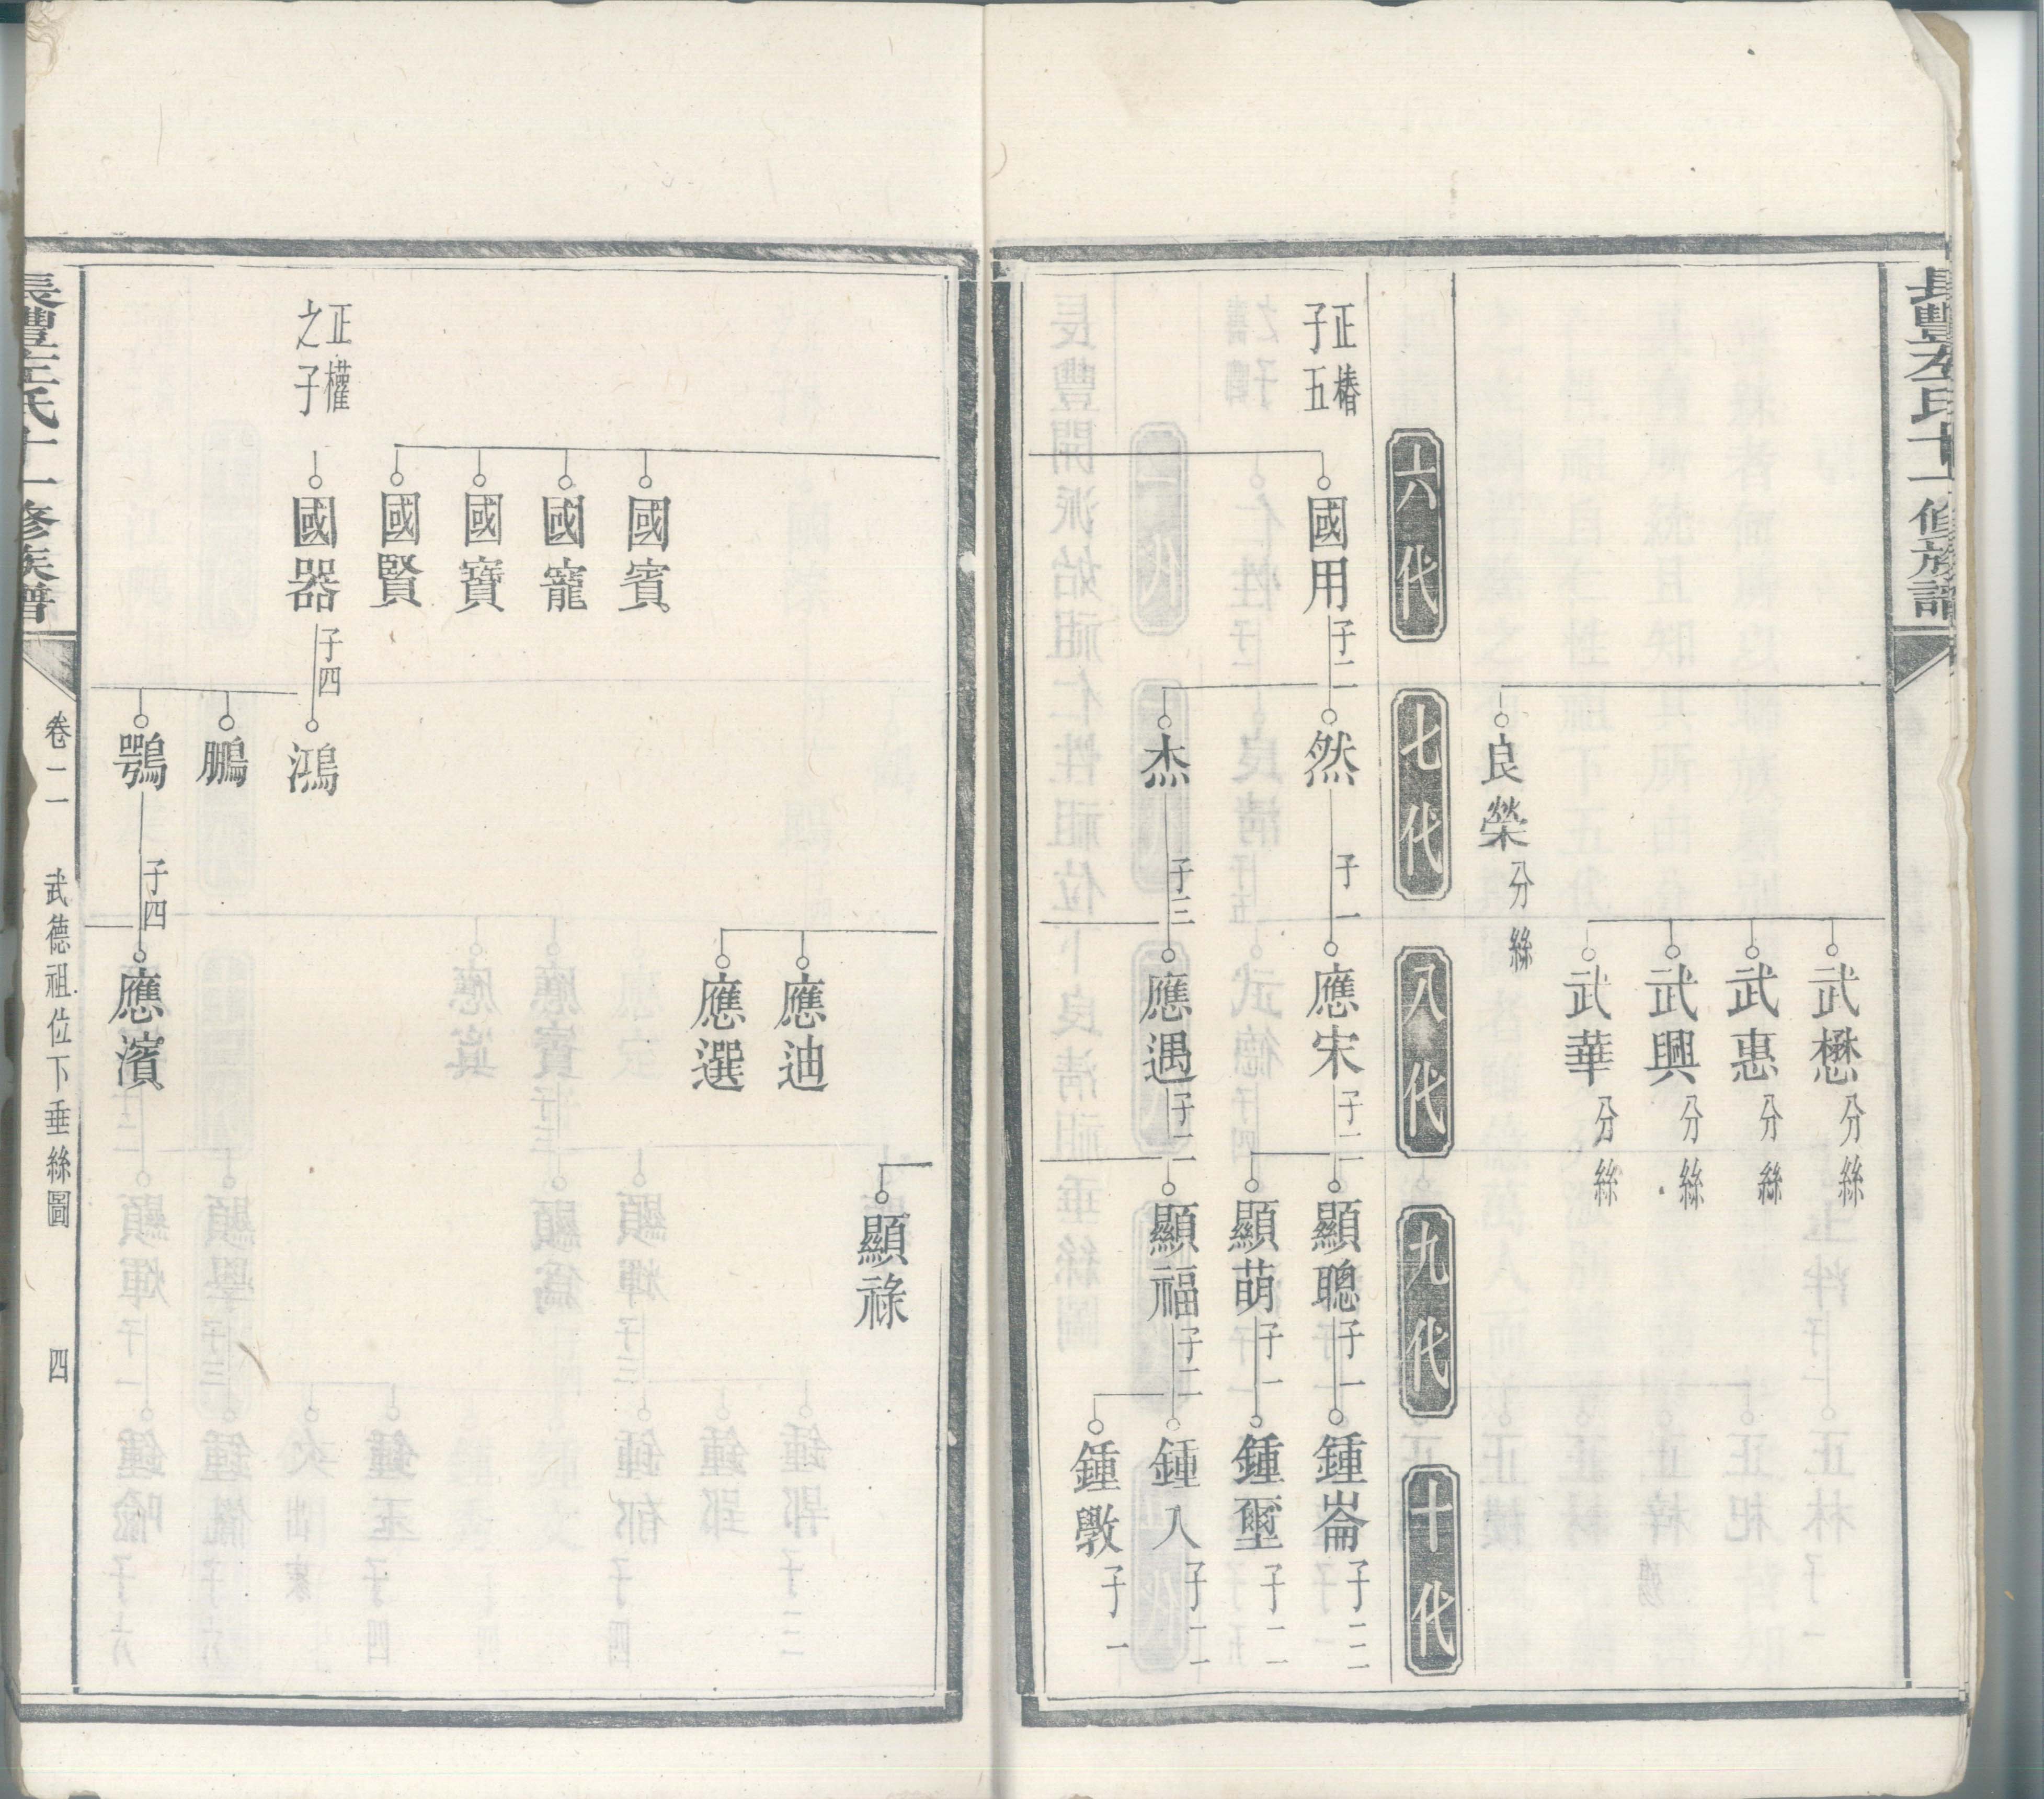 長豐左氏十一修族譜
武懋 分絲
武惠 分絲
武興 分絲
武華 分絲
良榮 分絲
六代
七代
八代
九代
十代
正椿
子五
國用 子二
然 子一
應宋 子二
顯聰 子一
鍾崙 子二
顯萌 子一
鍾璽 子二
杰 子三
應遇 子二
顯福 子二
鍾入 子二
鍾斆 子一
顯祿
應迪
應選
國賓
國寵
國寶
國賢
正權
之子
國器 子四
鴻
鵬
鶚 子四
應濱
長豐左氏十一修族譜
卷二 武德祖位下垂絲圖 四